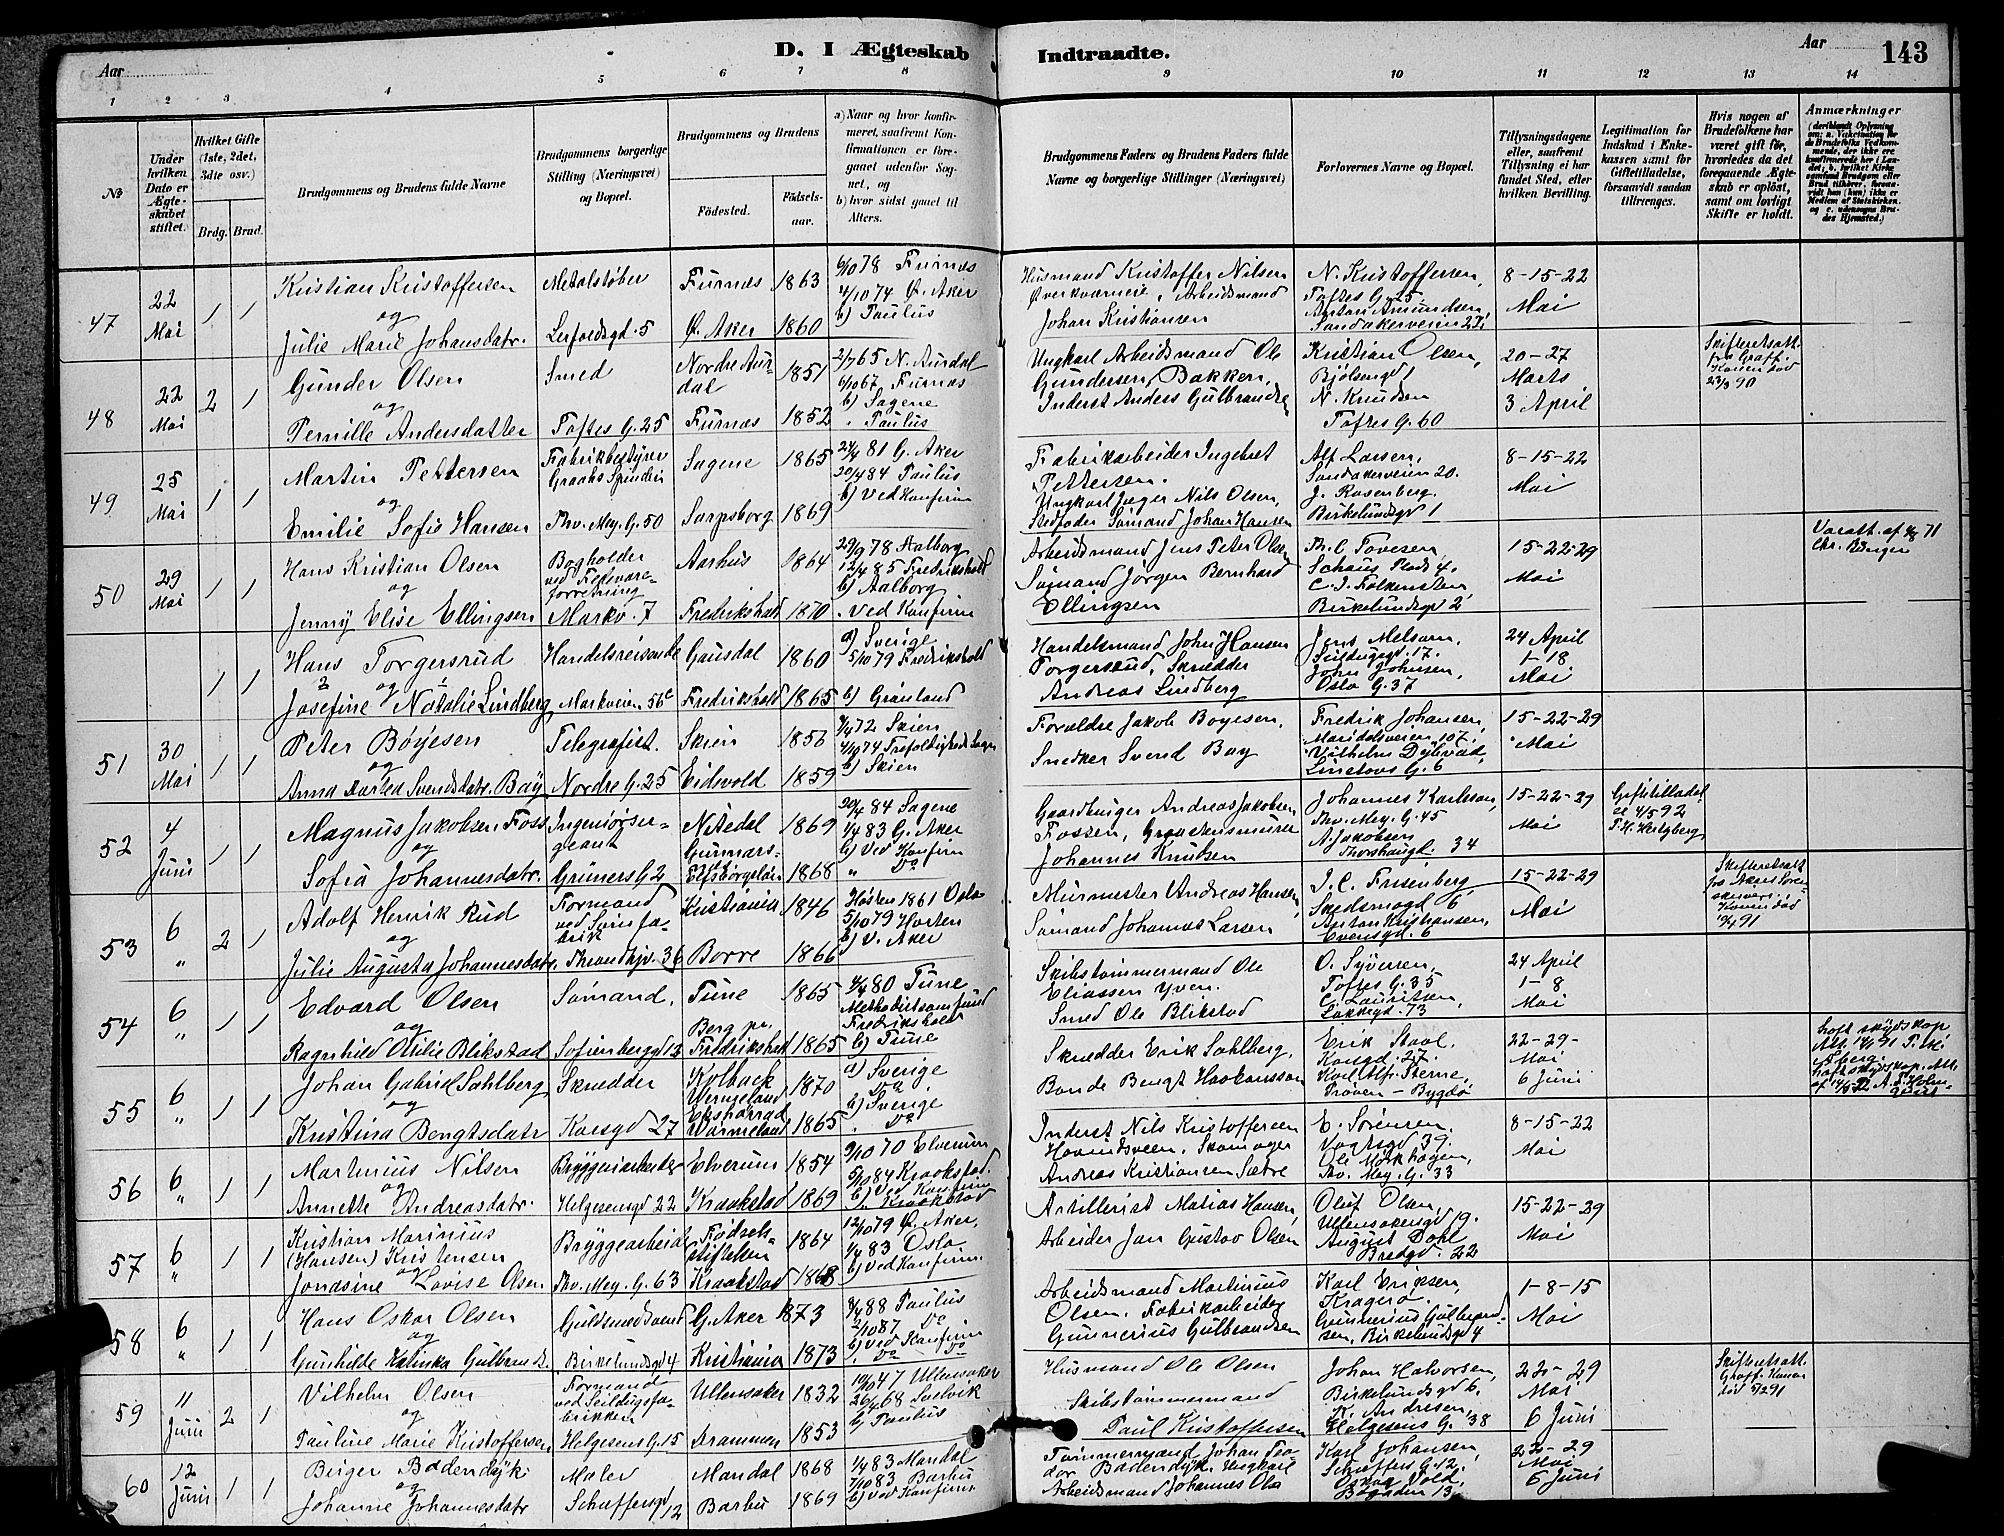 D. I Ægteskab Indtraadte.
Aar
Aar
143
1 2 3 4 5 6 7 8 9 10 11 12 13 14
No
Under hvilken Dato er Ægteskabet stiftet.
Hvilket Gifte (1ste, 2det, 3dte osv.)
Brdg. Brud.
Brudgommens og Brudens fulde Navne
Brudgommens borgerlige Stilling (Næringsvei) og Bopæl.
Brudgommens og Brudens
Fødested.
Fødselsaar.
a) Naar og hvor konfirmeret, saafremt Konfirmationen er foregaaet udenfor Sognet, og
b) hvor sidst gaaet til Alters.
Brudgommens Faders og Brudens Faders fulde Navne og borgerlige Stillinger (Næringsvei)
Forlovernes Navne og Bopæl.
Tillysningsdagene eller, saafremt Tillysning ei har fundet Sted, efter hvilken Bevilling.
Legitimation for Indskud i Enkekassen samt for Giftetilladelse, forsaavidt saadan tiltrænges.
Hvis nogen af Brudefolkene har været gift før, hvorledes da det foregaaende Ægteskab er opløst, samt om lovligt Skifte er holdt.
Anmærkninger
47 22 Mai 1 1
Kristian Kristoffersen Metalstøber Furnæs 1863 6/10 78 Furnæs
og
Julie Marie Johansdatr. Ø. Aker 1860 4/10 74 Ø. Aker b) Paulus
Husmand Kristoffer Nilsen Arbeidsmand Johan Kristiansen
N. Kristoffersen, Toftes G. 25. Anton Amundsen, Sandakerveien 27
8-15-22 Mai
48 22 Mai 2 1
Gunder Olsen Smed Nordre Aurdal 1851 2/7 65 N. Aurdal
og
Pernille Andersdatter Toftes G. 25 Furnæs 1852 6/10 67 Furnæs b) Sagene " Paulus
Ungkarl Arbeidsmand Ole Gundersen Bakken, Inderst Anders Gulbrandsen
Kristian Olsen, Bjølsengd 1 N. Knudsen Toftes G. 60
20-27 Marts 3 April
49 25 Mai 1 1
Martin Pettersen Fabrikbestyrer Graahs Spinderi Sagene 1865 24/4 81 G. Aker
og
Emilie Sofie Hansen Thv. Mey. G. 50 Sarpsborg 1869 20/4 84 Paulus b) Ved Konfirm
Fabrikarbeider Ingebret Pettersen. Ungkarl Jæger Nils Olsen, Stedfader Sømand Johan Hansen
Alf Larsen, Sandakerveien 20. J. Rosenberg. Birkelundsgd 1
8-15-22 Mai
50 29 Mai 1 1
Hans Kristian Olsen Bogholder ved Fedevareforretning Aarhus 1864 29/9 78 Aalborg
og
Jenny Elise Ellingsen Markv. 7 Fredrikshald 1870 12/4 85 Fredrikshald b) Aalborg " Ved Konfirm
Arbeidsmand Jens Peter Olsen Sømand Jørgen Bernhard Ellingsen
Th. C. Tovesen, Schous Plads 4. C. J. Falkensten Birkelundsgd 2
15-22-29 Mai
1 1
Hans Torgersrud Handelsreisende Gausdal 1860 a) Sverige
og
Josefine Natalie Lindberg Markveien 56 c Fredrikshald 1865 5/10 79 Fredrikshald b) Grønland
Handelsmand Johan Hansen Torgersrud, Skrædder Andreas Lindberg
Jens Melsom, Seildugsgd. 17. John Johnsen, Oslo G. 37
24 April 1-18 Mai
51 30 Mai 1 1
Peter Bøyesen Telegrafist. Skien 1856 72 Skien
og
Anna Svendsdatr. Bay Nordre G. 25 Eidsvold 1859 4/10 74 Trefoldigheds b) Skien
Forvaldre Jakob Boyesen. Snedker Svend Bay
Fredrik Johansen, Maridalsveien 107. Vilhelm Dybvad, Linstows G. 6
15-22-29 Mai
52 4 Juni 1 1
Magnus Jakobsen Foss Ingeniørsergeant Nitedal 1869 20/4 84 Sagene
og
Sofia Johannesdatr. Grüners G. 2 Elfsborgslän 1868 1/4 83 G. Aker b) Ved Konfirm " Do
Gaardbruger Andreas Jakobsen Fossen, Johannes Knudsen
Johannes Karlsson, Thv. Mey. G. 45 A. Jakobsen Thorshaugd. 34
15-22-29 Mai
Giftetilladelse 4/5 92 T. H. Hertzberg
53 6 " 2 1
Adolf Henrik Rud Formand ved Spigerfabrik Kristiania 1846 Høsten 1861 Oslo
og
Julie Augusta Johannesdatr. Throndhjv. 36 Borre 1866 5/10 79 Horten b) V. Aker
Murmester Andreas Hansen, Sømand Johannes Larsen
J. C. Frisenberg Skedsmogd 6 Anton Kristiansen, Evensgd. 6
15-22-29 Mai
54 6 " 1 1
Edvard Olsen Sømand. Tune 1865 80 Tune
og
Ragnhild Otilie Blikstad Sofienberggd 13 Berg pr. Fredrikshald 1865 Methodistsamfund Fredrikshald b) Tune
Skibstømmermand Ole Eliassen Yven. Smed Ole Blikstad
O. Syversen, Toftes G. 35 C. Lauritsen, Lakkegd. 73
24 April 1-8 Mai
55 6 " 1 1
Johan Gabriel Sahlberg Skrædder Kolbäck 1870 a) Sverige Do
og
Kristina Bengtsdatr Korsgd 27 Wärmeland 1865 b) Sverige " Do
Skrædder Erik Sahlberg, Bonde Bengt Haakansson
Erik Staal. Korsgd. 27. Karl Alfr. Sterne, Prøven - Bygdø
22-29- Mai 6 Juni
56 6 " 1 1
Martinius Nilsen Bryggeriarbeider Elverum 1854 9/10 70 Elverum
og
Annette Andreasdatr. Helgesensgd 22 Kraakstad 1869 5/10 84 Kraakstad. b) Ved Konfirm " Kraakstad
Inderst Nils Kristoffersen Skomager Andreas Kristiansen Sætre
E. Sørensen, Vogtsgd 39. Ole Mørkhagen, Thv. Mey. G. 33
8-15-22 Mai
57 6 " 1 1
Kristian Marinius (Hansen) Kristensen Bryggearbeider Fødselsstiftelsen 1864 12/10 79 Ø. Aker,
og
Jonasine Lovise Olsen Thv. Mey. G. 63 Kraakstad 1868 1/4 83 Oslo b) Ved Konfirm.
Artillerist Matias Hansen, Arbeider Jan Gustav Olsen
Oluf Olsen, Ullensakersgd 19. August Dahl Bredgd. 22
15-22-29 Mai
58 6 " 1 1
Hans Oskar Olsen Guldsmedsvend G. Aker 1873 88 Paulus
og
Gunhilde Kalinka Gulbrands. Birkelundsgd 4 Kristiania 1873 2/10 87 Do b) Ved Konfirm " Do Do
Arbeidsmand Martinius Olsen. Fabrikarbeider Gunnerius Gulbrandsen
Karl Eriksen, Kragerø. Gunnerius Gulbrandsen, Birkelundsgd 4
1-8-15 Mai
59 11 Juni 2 1
Vilhelm Olsen Formand ved Seildugsfabrikken Ullensaker 1832 10/10 47 Ullensaker
og
Pauline Marie Kristoffersen Helgesens G. 15 Drammen 1853 26/4 68 Svelvik b) Paulus
Husmand Ole Olsen Skibstømmermand Paul Kristoffersen
Johan Halvorsen, Birkelundsgd 6. K. Andresen, Helgesens G. 38
22-29 Mai 6 Juni
60 12 Juni 1 1
Birger Bodendyk Maler Mandal 1868 1/4 83 Mandal
og
Johanne Johannesdatr Schaffersgd 12 Barbu 1869 7/10 83 Barbu b) Ved Konfirm
Tømmermand Johan Teodor Bodendyk. Ungkarl Arbeidsmand Johannes Olsen
Karl Johansen, Schaffers G. 12. Oskar Vold, Bogaden 13
22-29 Mai 6 Juni